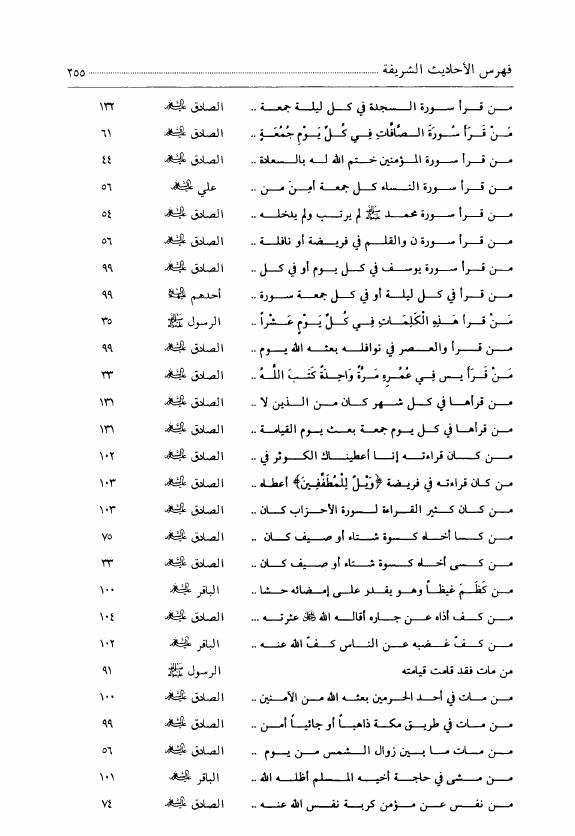 فهرس الأحاديث الشريفة ........ ٢٥٥
من قرأ سورة السجدة في كل ليلة جمعة .. الصادق ١٣٢
مَنْ قَرَأَ سُورَةَ الصَّافَّاتِ فِي كُلِّ يَوْمِ جُمُعَةٍ .. الصادق ٦١
من قرأ سورة المؤمنين ختم الله له بالسعادة .. الصادق ٤٤
من قرأ سورة النساء كل جمعة أمِنَ من .. علي ٥٦
من قرأ سورة محمد ﷺ لم يرتب ولم يدخله .. الصادق ٥٤
من قرأ سورة ن والقلم في فريضة أو نافلة .. الصادق ٥٦
من قرأ سورة يوسف في كل يوم أو في كل .. الصادق ٩٩
من قرأ في كل ليلة أو في كل جمعة سورة .. أحدهم ٩٩
مَنْ قرأ هَذِهِ الْكَلِمَاتِ فِي كُلِّ يَوْمٍ عَشْراً .. الرسول ﷺ ٣٥
من قرأ والعصر في نوافله بعثه الله يوم .. الصادق ٩٩
مَنْ قَرَأَ يس فِي عُمُرِهِ مَرَّةً وَاحِدَةً كَتَبَ اللهُ .. الصادق ٣٣
من قرأها في كل شهر كان من الذين لا .. الصادق ١٣١
من قرأها في كل يوم جمعة بعث يوم القيامة .. الصادق ١٣١
من كان قراءته إنا أعطيناك الكوثر في .. الصادق ١٠٢
من كان قراءته في فريضة ﴿وَيْلٌ لِلْمُطَفِّفِينَ﴾ أعطاه .. الصادق ١٠٣
من كان كثير القراءة لسورة الأحزاب كان .. الصادق ١٠٣
من كسا أخاه كسوة شتاء أو صيف كان .. الصادق ٧٥
من كسى أخاه كسوة شتاء أو صيف كان .. الصادق ٣٣
من كَظَمَ غيظاً وهو يقدر على إمضائه حشا .. الباقر ١٠٠
من كف أذاه عن جاره أقاله الله عثرته ... الصادق ١٠٤
من كفّ غضبه عن الناس كفّ الله عنه .. الباقر ١٠٢
من مات فقد قامت قيامته الرسول ﷺ ٩١
من مات في أحد الحرمين بعثه الله من الآمنين .. الصادق ١٠٠
من مات في طريق مكة ذاهباً أو جائياً أمن .. الصادق ٩٩
من مات ما بين زوال الشمس من يوم .. الصادق ٥٦
من مشى في حاجة أخيه المسلم أظله الله .. الباقر ١٠١
من نفس عن مؤمن كربة نفس الله عنه .. الصادق ٧٤